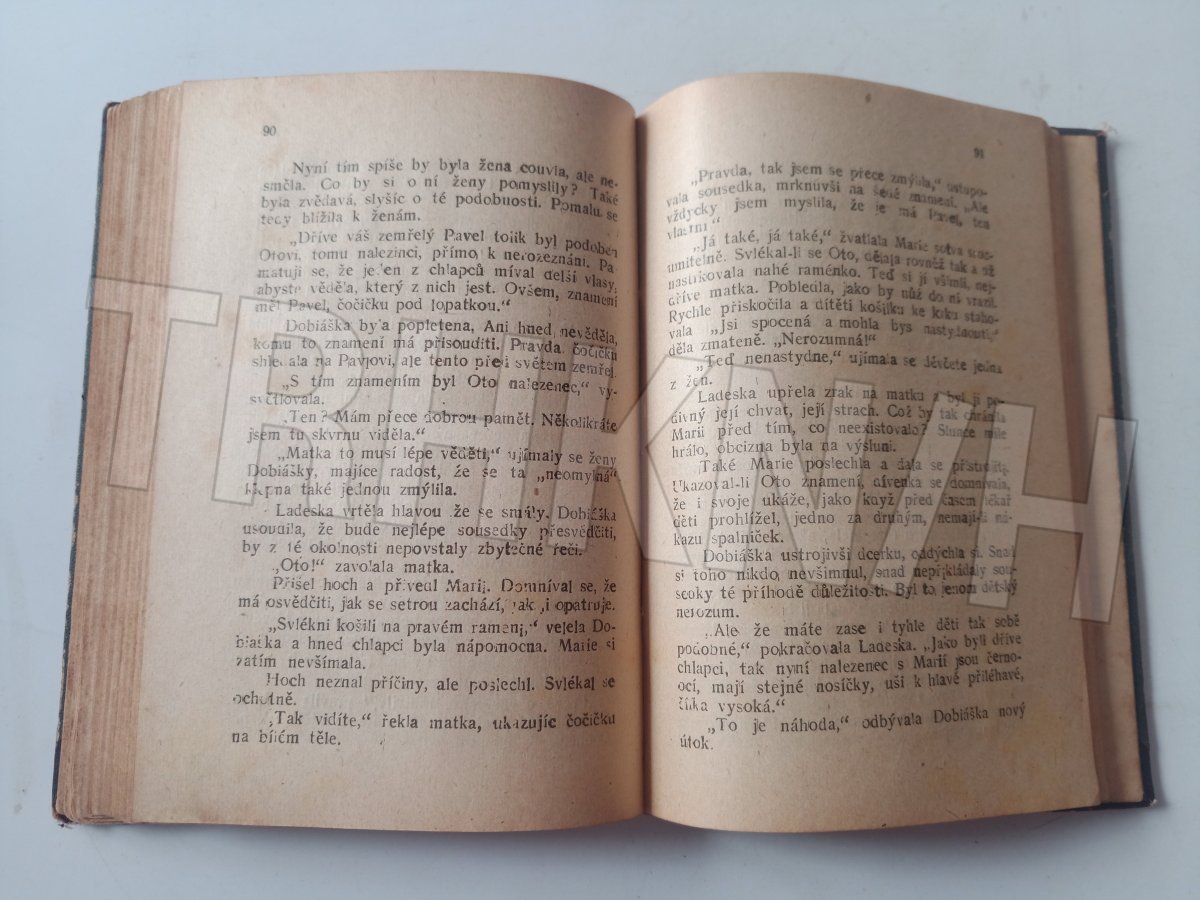 90
Nyní tím spíše by byla žena couvla, ale ne-
směla. Co by si o ní ženy pomyslily? Také
byla zvědavá, slyšíc o té podobnosti. Pomalu se
tedy blížila k ženám.
„Dříve váš zemřelý Pavel tolik byl podoben
Otovi, tomu nalezinci, přímo k nerozeznání. Pa-
matuji se, že jeden z chlapců míval delší vlasy,
abyste věděla, který z nich jest. Ovšem, znamení
měl Pavel, čočičku pod lopatkou.“
Dobiáška byla popletena. Ani hned nevěděla,
komu to znamení má přisouditi. Pravda, čočičku
shledala na Pavlovi, ale tento před světem zemřel.
„S tím znamením byl Oto nalezenec,“ vy-
světlovala.
„Ten? Mám přece dobrou pamět. Několikráte
jsem tu skvrnu viděla.“
„Matka to musí lépe věděti,“ ujímaly se ženy
Dobiášky, majíce radost, že se ta „neomylná“
klepna také jednou zmýlila.
Ladeska vrtěla hlavou že se smály. Dobiáška
usoudila, že bude nejlépe sousedky přesvědčiti,
by z té okolnosti nepovstaly zbytečné řeči.
„Oto!“ zavolala matka.
Přišel hoch a přivedl Marii. Domníval se, že
má osvědčiti, jak se setrou zachází, jak ji opatruje.
„Svlékni košili na pravém rameni,“ velela Do-
biaška a hned chlapci byla nápomocna. Marie si
zatím nevšímala.
Hoch neznal příčiny, ale poslechl. Svlékal se
ochotně.
„Tak vidíte,“ řekla matka, ukazujíc čočičku
na bílém těle.
91
„Pravda, tak jsem se přece zmýlila,“ ustupo-
vala sousedka, mrknuvši na šedé znamení. „Ale
vždycky jsem myslila, že je má Pavel, ten
vlastní“
„Já také, já také,“ žvatlala Marie sotva sroz-
umitelně. Svlékal-li se Oto, dělala rovněž tak a už
nastrkovala nahé raménko. Teď si jí všimli, nej-
dříve matka. Pobledla, jako by nůž do ní vrazil.
Rychle přiskočila a dítěti košilku ke krku staho-
vala „Jsi spocená a mohla bys nastydnouti,“
děla zmateně. „Nerozumná!“
„Teď nenastydne,“ ujímala se děvčete jedna
z žen.
Ladeska upřela zrak na matku a byl jí po-
divný její chvat, její strach. Což by tak chránila
Marii před tím, co neexistovalo? Slunce mile
hrálo, obcizna byla na výsluní.
Také Marie poslechla a dala se přistrojiti.
Ukazoval-li Oto znamení, dívenka se domnívala,
že i svoje ukáže, jako když před časem lékař
děti prohlížel, jedno za druhým, nemají-li ná-
kazu spalniček.
Dobiáška ustrojivši dcerku, oddýchla si. Snad
si toho nikdo nevšimnul, snad nepřikládaly sou-
sedky té příhodě důležitosti. Byl to jenom dětský
nerozum.
„Ale že máte zase i tyhle děti tak sobě
podobné,“ pokračovala Ladeska. „Jako byli dříve
chlapci, tak nyní nalezenec s Marií jsou černo-
oci, mají stejné nosíčky, uši k hlavě přiléhavé,
čílka vysoká.“
„To je náhoda,“ odbývala Dobiáška nový
útok.
TRHKNIH